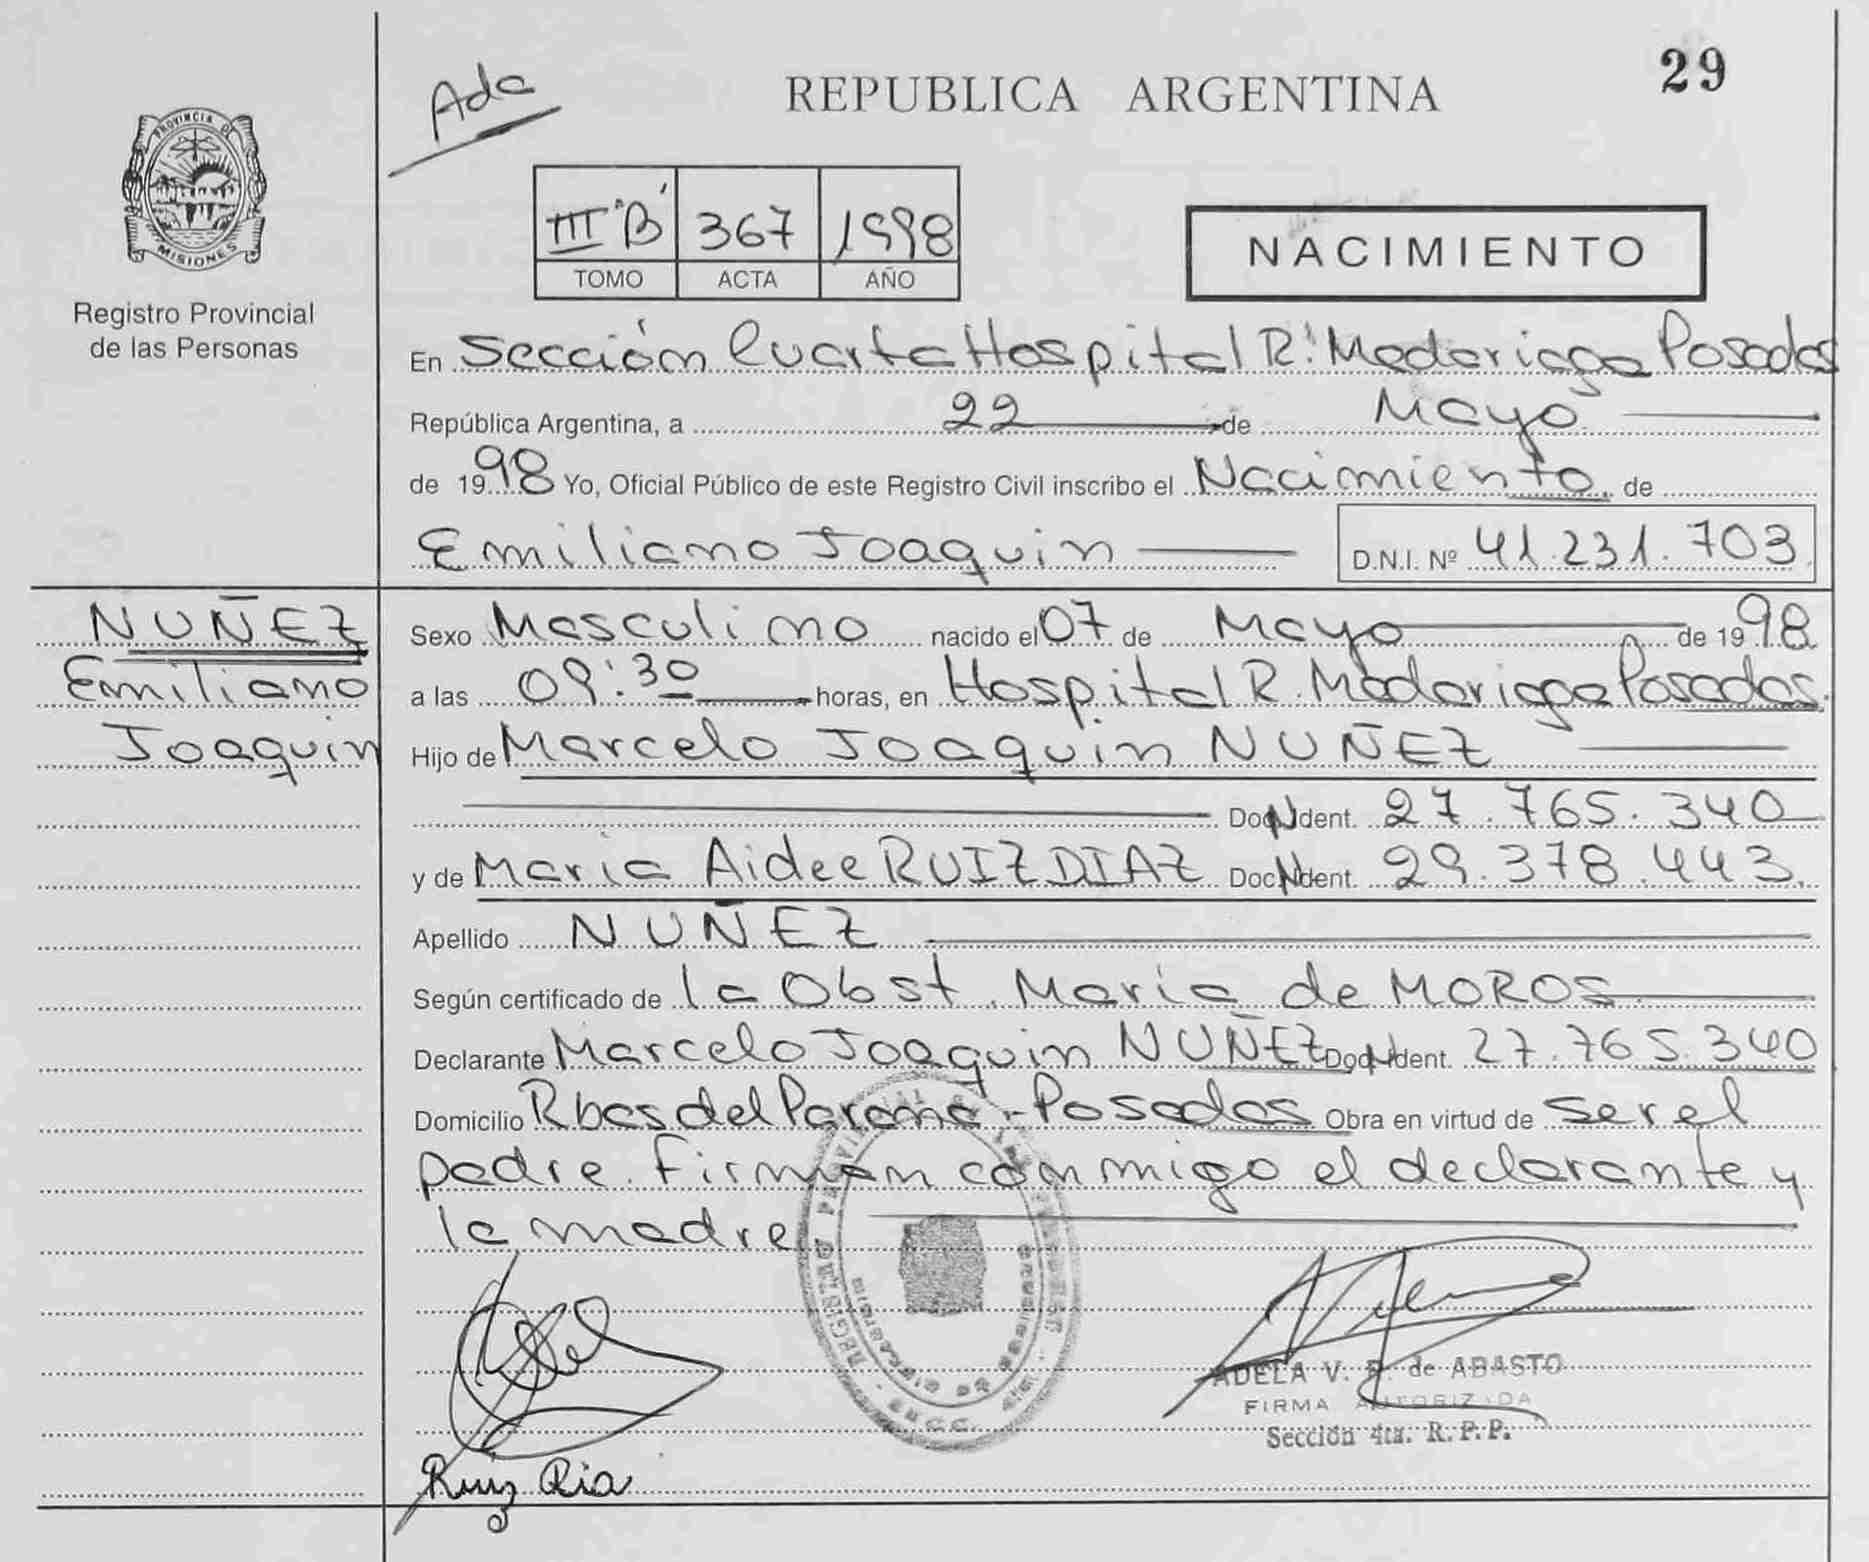 29
Ada
REPUBLICA ARGENTINA
PROVINCIA DE
MISIONES
Registro Provincial
de las Personas
III "B" 367 1998
TOMO ACTA AÑO
NACIMIENTO
En Sección Cuarta Hospital R. Madariaga Posadas
República Argentina, a 22 de Mayo
de 1998 Yo, Oficial Público de este Registro Civil inscribo el Nacimiento de
Emiliano Joaquin D.N.I. Nº 41.231.703
NUÑEZ
Emiliano
Joaquin
Sexo Masculino nacido el 07 de Mayo de 1998
a las 09:30 horas, en Hospital R. Madariaga Posadas.
Hijo de Marcelo Joaquin NUÑEZ
Doc. Ident. 27.765.340
y de Maria Aidee RUIZ DIAZ Doc. Ident. 29.378.443.
Apellido NUÑEZ
Según certificado de la Obst. Maria de MOROS
Declarante Marcelo Joaquin NUÑEZ Doc. Ident. 27.765.340
Domicilio Rbas del Parana - Posadas Obra en virtud de ser el
padre. Firman conmigo el declarante y
la madre
REGISTRO PROVINCIAL DE LAS PERSONAS
ADELA V. de ABASTO
FIRMA AUTORIZADA
Sección 4ta. R.P.P.
Ruiz Dia